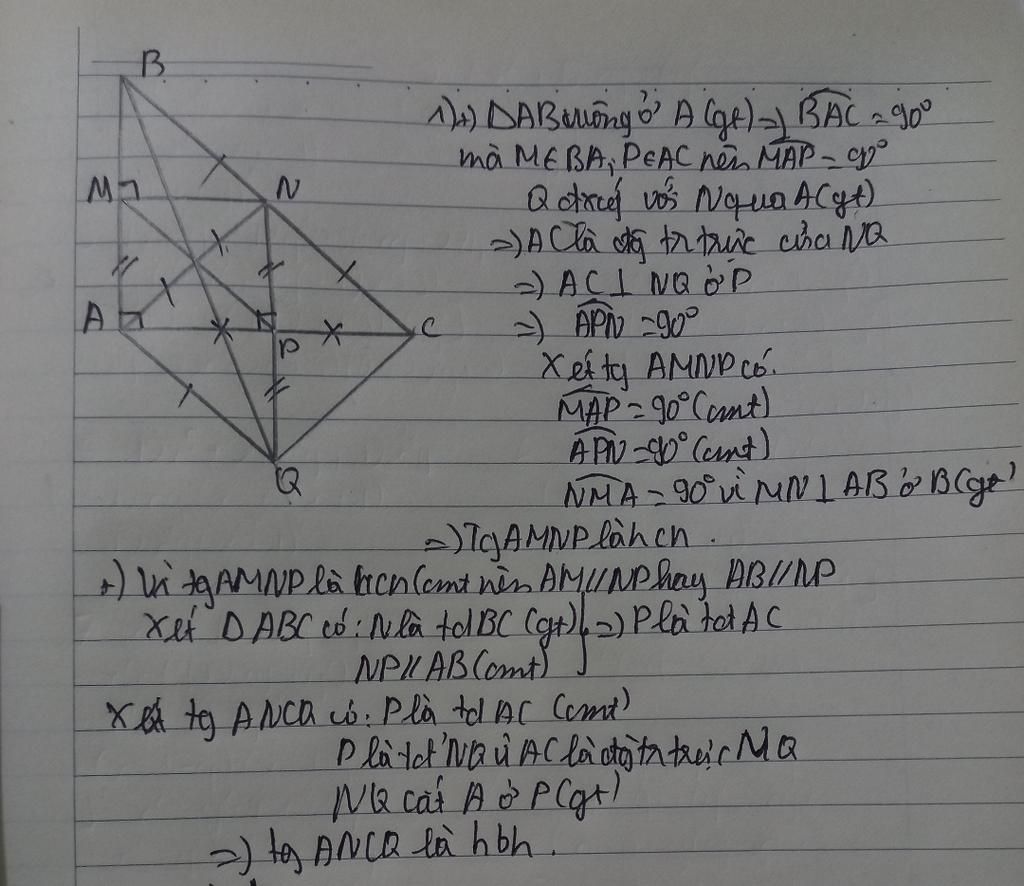 B
M
N
A
P
C
Q
1)+) ΔABC vuông ở A (gt) => BAC = 90°
mà M∈BA, P∈AC nên MAP = 90°
Q đtxứ với N qua A (gt)
=> AC là đg tr trực của NQ
=> AC ⊥ NQ ở P
=> APN = 90°
Xét tg AMNP có:
MAP = 90° (cmt)
APN = 90° (cmt)
NMA = 90° vì MN ⊥ AB ở B (gt)
=> Tg AMNP là hcn.
+) Vì tg AMNP là hcn (cmt nên AM // NP hay AB // NP
Xét ΔABC có: N là tđ BC (gt) } => P là tđ AC
NP // AB (cmt)
Xét tg ANCQ có: P là tđ AC (cmt)
P là tđ NQ vì AC là đg tr trực NQ
NQ cắt A ở P (gt)
=> tg ANCQ là hbh.